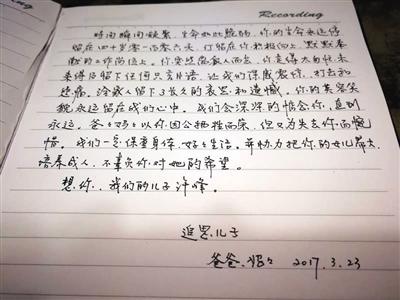 Recording
时间瞬间凝聚，生命如此脆弱，你的生命永远停
留在四十岁零一百零六天，行留在你积极向上，默默奉
献的工作岗位上。你突然离我们而去，你走得太匆忙，未
来得及留下任何只言片语，让我们深感震惊，打击和
悲痛。给家人留下了长久的哀思和遗憾。你的英容笑
貌永远留在我们心中。我们会深深的惦念你，直到
永远。爸々妈々以你因公牺牲而荣，但又为失去你而惋
惜。我们一定保重身体，好々生活。并协力把你的女儿带大
培养成人，不辜负你对她的希望。
想你，我们的儿子许峰。
追思儿子
爸爸、妈々 2017.3.23